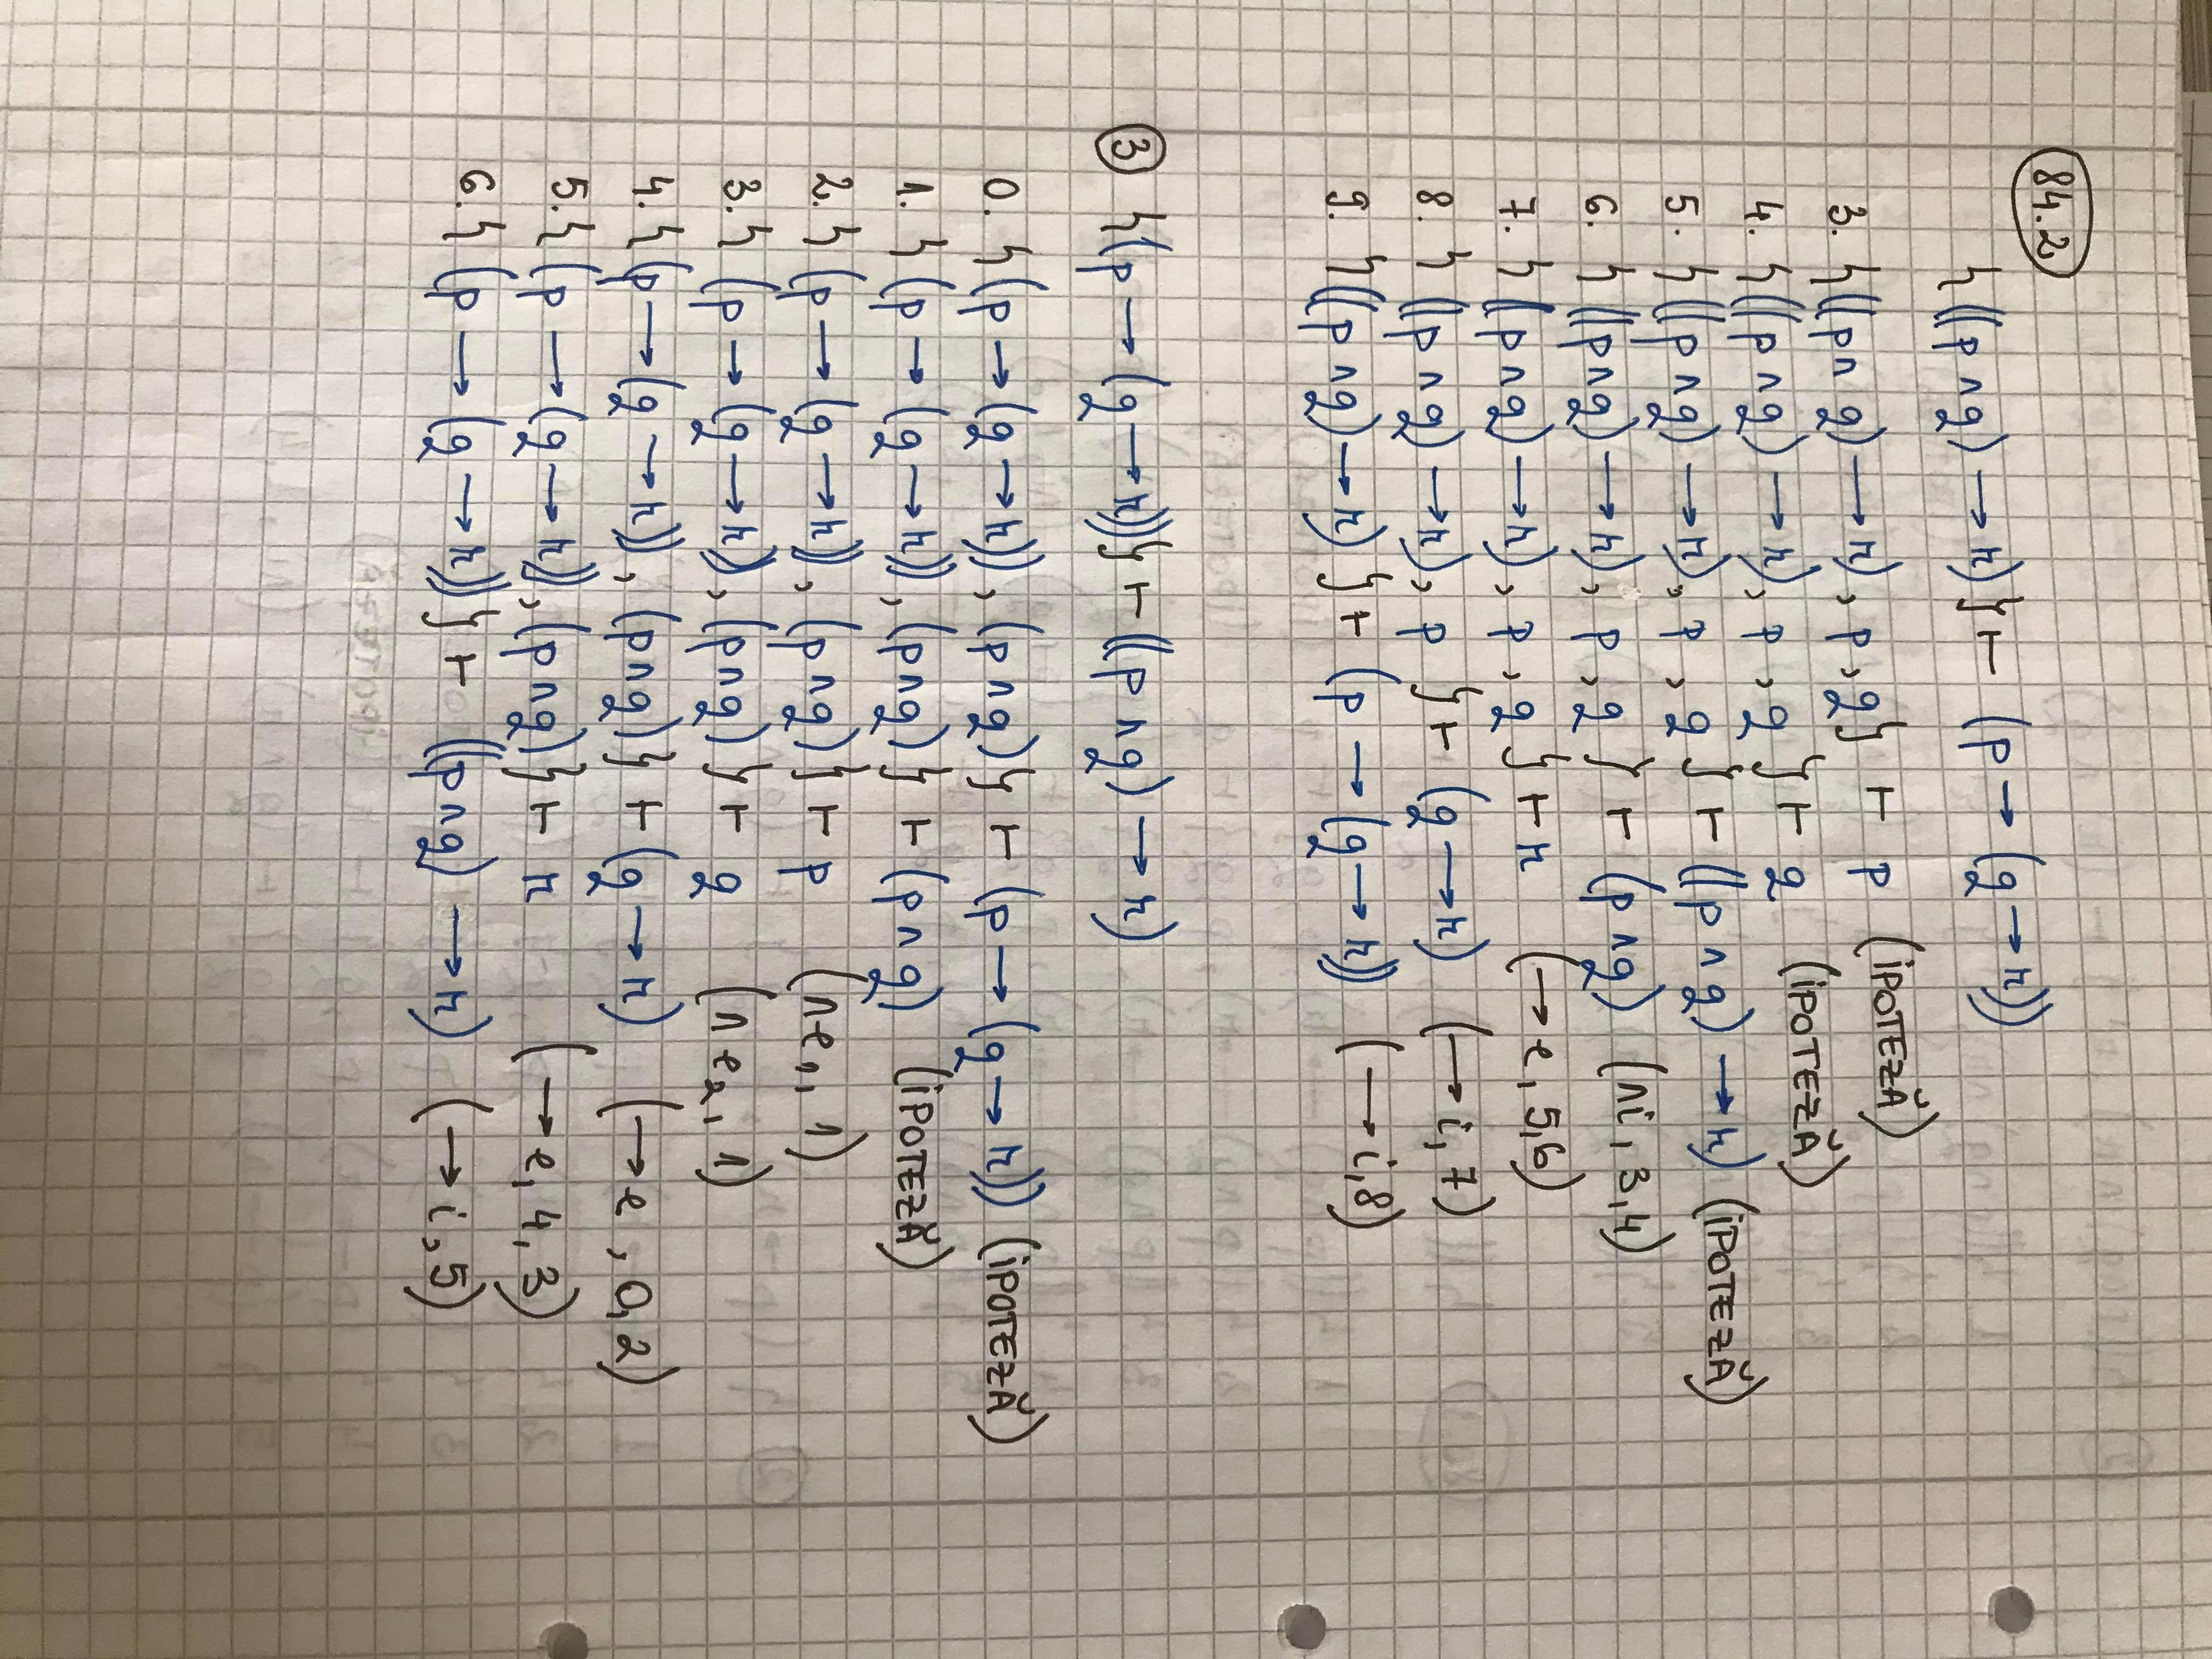 84.2
{((p ∧ q) → r)} ⊢ (p → (q → r))
3. {((p ∧ q) → r), p, q} ⊢ p (iPOTEZĂ)
4. {((p ∧ q) → r), p, q} ⊢ q (iPOTEZĂ)
5. {((p ∧ q) → r), p, q} ⊢ ((p ∧ q) → r) (iPOTEZĂ)
6. {((p ∧ q) → r), p, q} ⊢ (p ∧ q) (∧i, 3,4)
7. {((p ∧ q) → r), p, q} ⊢ r (→ e, 5,6)
8. {((p ∧ q) → r), p} ⊢ (q → r) (→ i, 7)
9. {((p ∧ q) → r)} ⊢ (p → (q → r)) (→ i,8)
3 {(p → (q → r))} ⊢ ((p ∧ q) → r)
0. {(p → (q → r)), (p ∧ q)} ⊢ (p → (q → r)) (iPOTEZĂ)
1. {(p → (q → r)), (p ∧ q)} ⊢ (p ∧ q) (iPOTEZĂ)
2. {(p → (q → r)), (p ∧ q)} ⊢ p (∧e₁, 1)
3. {(p → (q → r)), (p ∧ q)} ⊢ q (∧e₂, 1)
4. {(p → (q → r)), (p ∧ q)} ⊢ (q → r) (→ e, 0, 2)
5. {(p → (q → r)), (p ∧ q)} ⊢ r (→ e, 4, 3)
6. {(p → (q → r))} ⊢ ((p ∧ q) → r) (→ i, 5)